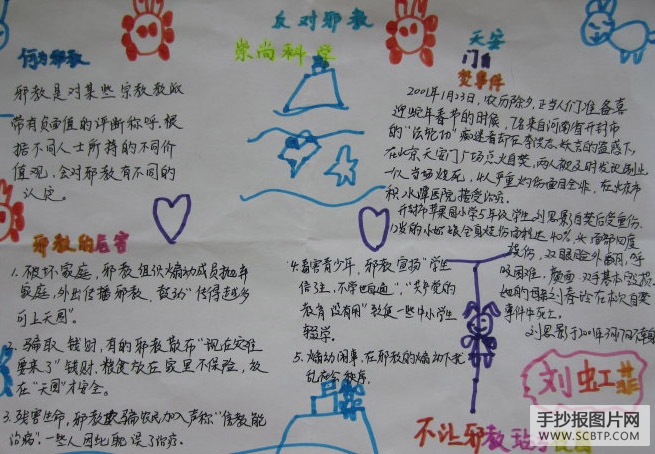 反对邪教
崇尚科学
何为邪教
邪教是对某些宗教教派
带有负面值的评断称呼,根
据不同人士所持的不同价
值观,会对邪教有不同的
认定。
邪教的危害
1.破坏家庭,邪教组织煽动成员抛弃
家庭,外出传播邪教,鼓动"传得越多
可上天国"。
2.骗取钱财,有的邪教散布"现在灾难
要来了"钱财、粮食放在家里不保险,放
在"天国"才安全。
3.残害生命,邪教欺骗农民加入声称"信教能
治病",一些人因此耽误了治疗。
4.毒害青少年,邪教宣扬"学生
信主,不学也自通","共产党的
教育没有用"致使一些中小学生
辍学。
5.煽动闹事,在邪教的煽动下扰
乱社会秩序。
天安
门自
焚事件
2001年1月23日,农历除夕,正当人们准备喜
迎蛇年春节的时候,7名来自河南省开封市
的"法轮功"痴迷者却在李洪志妖言的蛊惑下,
在北京天安门广场点火自焚,两人被及时发现制止
一人当场烧死,4人严重灼伤面目全非,在北京市
积水潭医院接受治疗。
开封市苹果园小学5年级学生刘思影自焚后受重伤。
12岁的小姑娘全身烧伤面积达40%,头面部四度
烧伤,双眼睑外翻,呼
吸困难,颜面、双手基本毁损。
她的母亲刘春玲在本次自焚
事件中死亡。
刘思影于2001年3月17日
刘虹菲
不让邪教
手抄报图片网
WWW.SCBTP.COM